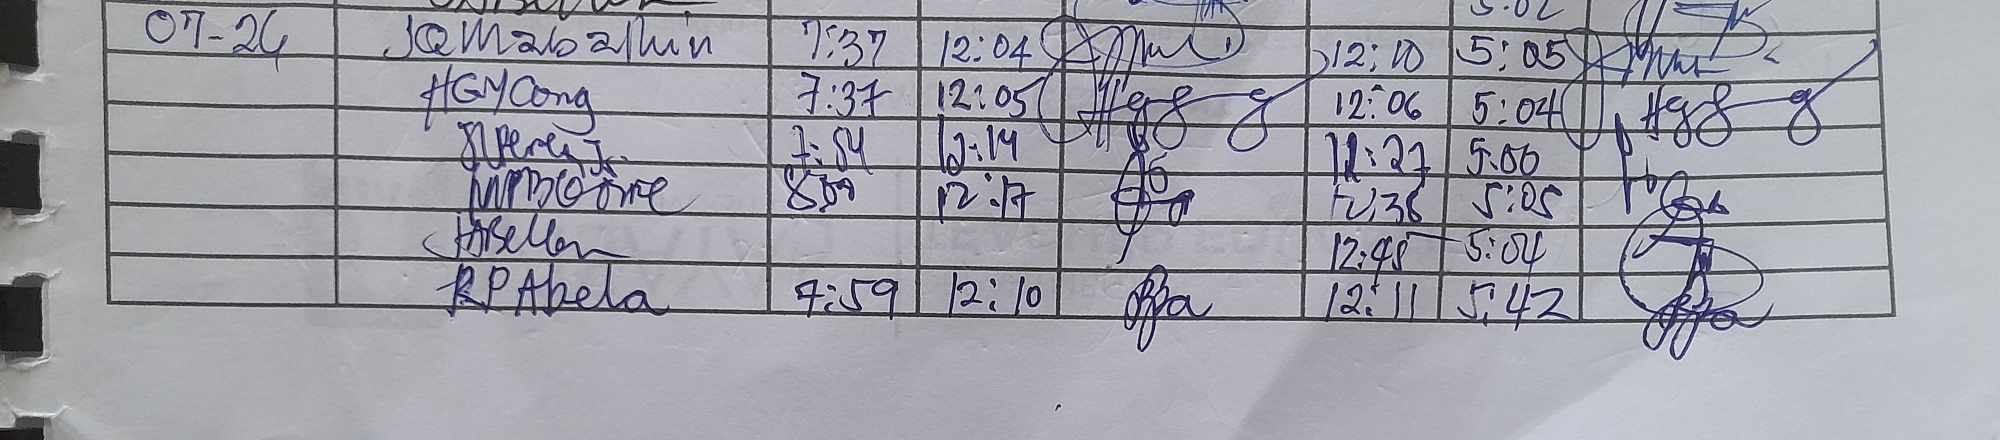 5:02
07-24 JQMabalhin 7:37 12:04 12:10 5:05
HGYCong 7:37 12:05 12:06 5:04
JLPerez Jr. 7:54 12:14 12:27 5:00
12:17 12:36 5:05
JABellen 12:45 5:04
RPAbela 7:59 12:10 12:11 5:42